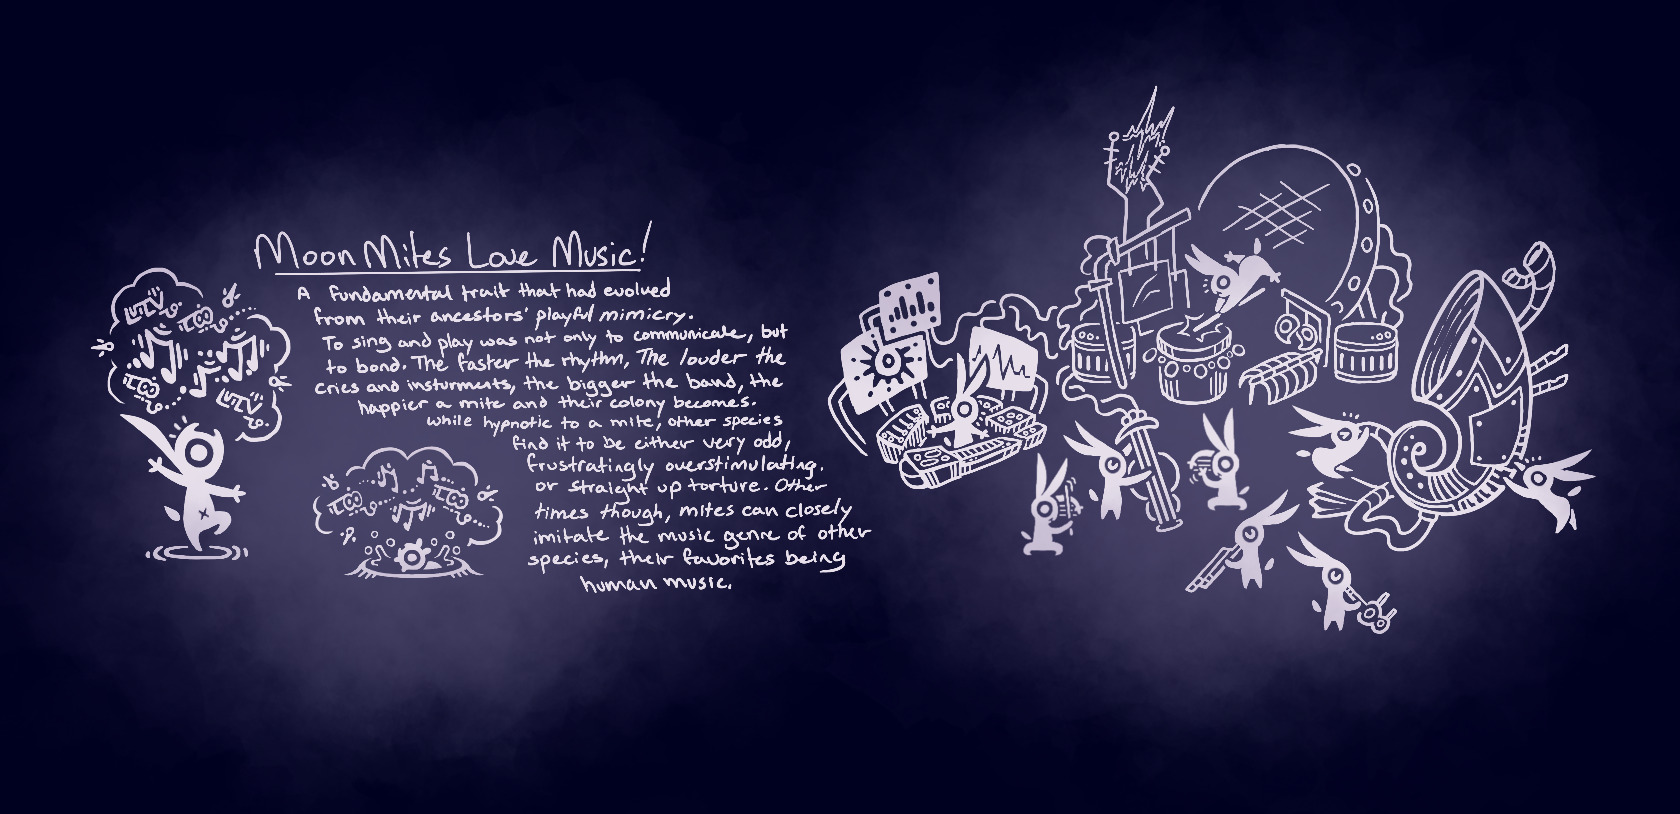 Moon Mites Love Music!
A fundamental trait that had evolved
from their ancestors' playful mimicry.
To sing and play was not only to communicate, but
to bond. The faster the rhythm, The louder the
cries and insturments, the bigger the band, the
happier a mite and their colony becomes.
while hypnotic to a mite, other species
find it to be either very odd,
frustratingly overstimulating.
or straight up torture. Other
times though, mites can closely
imitate the music genre of other
species, their favorites being
human music.